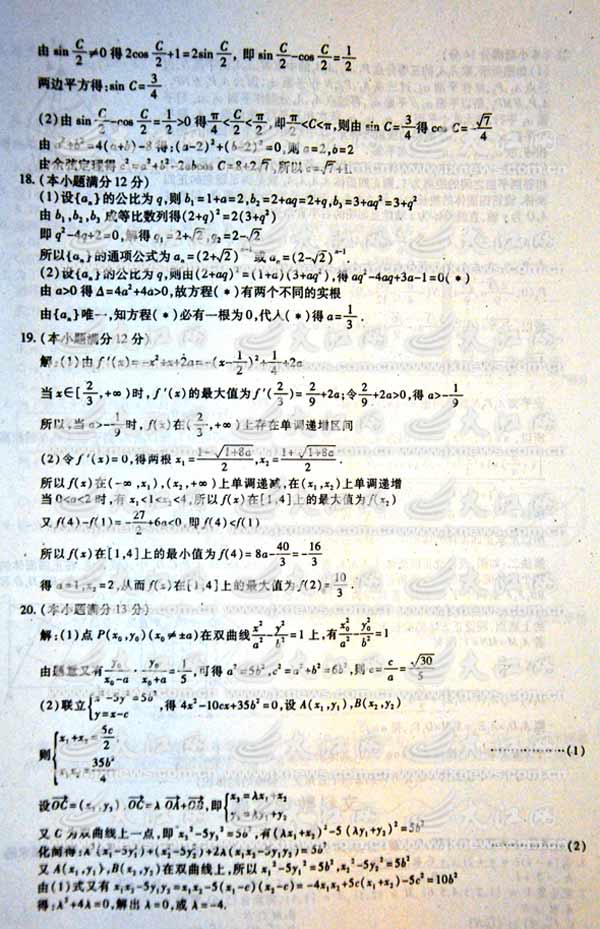 由 sin C/2 ≠0 得 2cos C/2 +1=2sin C/2 , 即 sin C/2 -cos C/2 = 1/2
两边平方得:sin C= 3/4
(2)由 sin C/2 -cos C/2 = 1/2 >0 得 π/4 < C/2 < π/2 ,即 π/2 <C<π,则由 sin C= 3/4 得 cos C=- √7/4
由 a²+b²=4(a+b)-8 得:(a-2)²+(b-2)²=0,则 a=2,b=2
由余弦定理得 c²=a²+b²-2abcos C=8+2√7,所以 c=√7+1.
18.(本小题满分 12 分)
(1)设{aₙ}的公比为 q,则 b₁=1+a=2,b₂=2+aq=2+q,b₃=3+aq²=3+q²
由 b₁,b₂,b₃ 成等比数列得(2+q)²=2(3+q²)
即 q²-4q+2=0,解得 q₁=2+√2,q₂=2-√2
所以{aₙ}的通项公式为 aₙ=(2+√2)ⁿ⁻¹ 或 aₙ=(2-√2)ⁿ⁻¹.
(2)设{aₙ}的公比为 q,则由(2+aq)²=(1+a)(3+aq²),得 aq²-4aq+3a-1=0(*)
由 a>0 得 Δ=4a²+4a>0,故方程(*)有两个不同的实根
由{aₙ}唯一,知方程(*)必有一根为 0,代入(*)得 a= 1/3 .
19.(本小题满分 12 分)
解:(1)由 f′(x)=-x²+x+2a=-(x- 1/2 )²+ 1/4 +2a
当 x∈[ 2/3 ,+∞)时,f′(x)的最大值为 f′( 2/3 )= 2/9 +2a;令 2/9 +2a>0,得 a>- 1/9
所以,当 a>- 1/9 时,f(x)在( 2/3 ,+∞)上存在单调递增区间
(2)令 f′(x)=0,得两根 x₁= 1-√1+8a/2 ,x₂= 1+√1+8a/2 .
所以 f(x)在(-∞,x₁),(x₂,+∞)上单调递减,在(x₁,x₂)上单调递增
当 0<a<2 时,有 x₁<1<x₂<4,所以 f(x)在[1,4]上的最大值为 f(x₂)
又 f(4)-f(1)=- 27/2 +6a<0,即 f(4)<f(1)
所以 f(x)在[1,4]上的最小值为 f(4)=8a- 40/3 =- 16/3
得 a=1,x₂=2,从而 f(x)在[1,4]上的最大值为 f(2)= 10/3 .
20.(本小题满分 13 分)
解:(1)点 P(x₀,y₀)(x₀≠±a)在双曲线 x²/a² - y²/b² =1 上,有 x₀²/a² - y₀²/b² =1
由题意又有 y₀/x₀-a · y₀/x₀+a = 1/5 ,可得 a²=5b²,c²=a²+b²=6b²,则 e= c/a = √30/5
(2)联立{ x²-5y²=5b² y=x-c ,得 4x²-10cx+35b²=0,设 A(x₁,y₁),B(x₂,y₂)
则{ x₁+x₂= 5c/2 x₁x₂= 35b²/4 ………………(1)
设 OC=(x₃,y₃),OC=λ OA+OB,即{ x₃=λx₁+x₂ y₃=λy₁+y₂
又 C 为双曲线上一点,即 x₃²-5y₃²=5b²,有(λx₁+x₂)²-5(λy₁+y₂)²=5b²
化简得:λ²(x₁²-5y₁²)+(x₂²-5y₂²)+2λ(x₁x₂-5y₁y₂)=5b² (2)
又 A(x₁,y₁),B(x₂,y₂)在双曲线上,所以 x₁²-5y₁²=5b²,x₂²-5y₂²=5b²
由(1)式又有 x₁x₂-5y₁y₂=x₁x₂-5(x₁-c)(x₂-c)=-4x₁x₂+5c(x₁+x₂)-5c²=10b²
得:λ²+4λ=0,解出 λ=0,或 λ=-4.